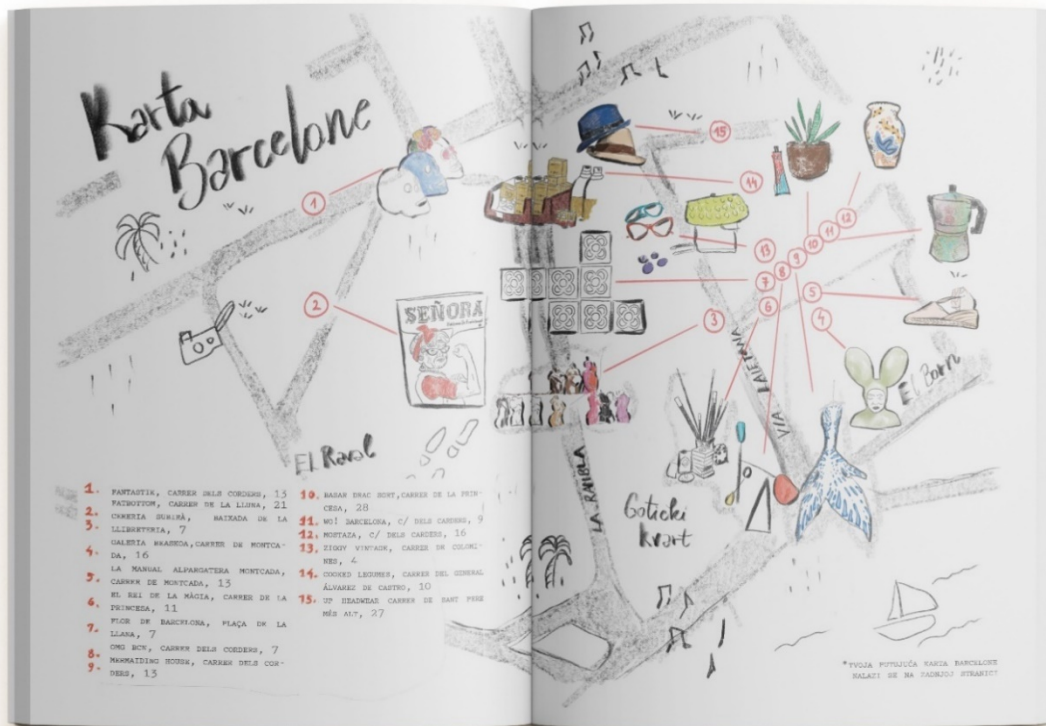 Karta
Barcelone
1
2
SEÑORA
El Raval
15
14
13
12
11
10
9
8
7
6
5
3
4
VIA LAIETANA
El Born
LA RAMBLA
Gotički
kvart
1. FANTASTIK, CARRER DELS CORDERS, 13
FATBOTTOM, CARRER DE LA LLUNA, 21
2. CERERIA SUBIRÀ, BAIXADA DE LA
3. LLIBRETERIA, 7
GALERIA BRASEDA, CARRER DE MONTCA-
4. DA, 16
LA MANUAL ALPARGATERA MONTCADA,
5. CARRER DE MONTCADA, 13
EL REI DE LA MÀGIA, CARRER DE LA
6. PRINCESA, 11
FLOR DE BARCELONA, PLAÇA DE LA
7. LLANA, 7
8. OMG BCN, CARRER DELS CORDERS, 7
9. MERMAIDING HOUSE, CARRER DELS COR-
DERS, 13
10. BASAR DRAC SORT, CARRER DE LA PRIN-
CESA, 28
11. WOÏ BARCELONA, C/ DELS CARDERS, 9
12. MOSTAZA, C/ DELS CARDERS, 16
13. ZIGGY VINTAGE, CARRER DE COLOMI-
NES, 4
14. COOKED LEGUMES, CARRER DEL GENERAL
ÁLVAREZ DE CASTRO, 10
15. UP HEADWEAR CARRER DE SANT PERE
MÉS ALT, 27
*TVOJA PUTUJUĆA KARTA BARCELONE
NALAZI SE NA ZADNJOJ STRANICI